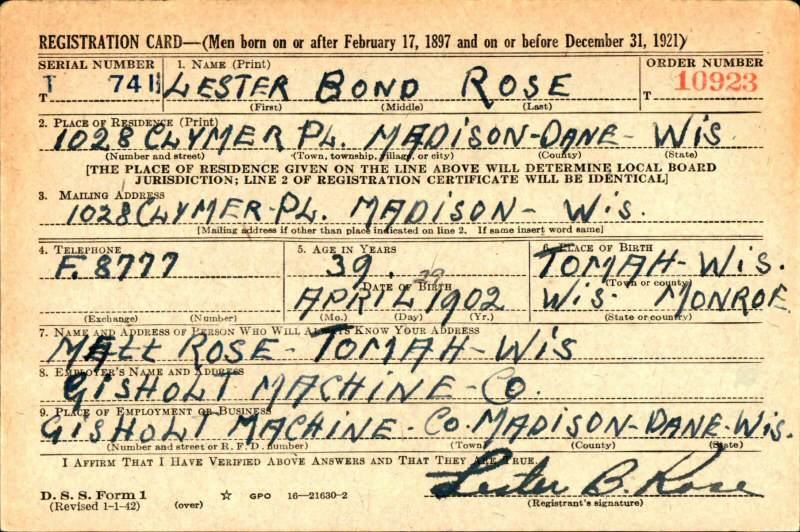 REGISTRATION CARD—(Men born on or after February 17, 1897 and on or before December 31, 1921)
SERIAL NUMBER 1. NAME (Print) ORDER NUMBER
T 741 LESTER BOND ROSE T 10923
(First) (Middle) (Last)
2. PLACE OF RESIDENCE (Print)
1028 CLYMER PL. MADISON-DANE- WIS.
(Number and street) (Town, township, village, or city) (County) (State)
[THE PLACE OF RESIDENCE GIVEN ON THE LINE ABOVE WILL DETERMINE LOCAL BOARD
JURISDICTION; LINE 2 OF REGISTRATION CERTIFICATE WILL BE IDENTICAL]
3. MAILING ADDRESS
1028 CLYMER-PL. MADISON- WIS.
[Mailing address if other than place indicated on line 2. If same insert word same]
4. TELEPHONE 5. AGE IN YEARS 6. PLACE OF BIRTH
F. 8777 39. TOMAH-WIS.
DATE OF BIRTH (Town or county)
APRIL 29 1902 WIS. MONROE
(Exchange) (Number) (Mo.) (Day) (Yr.) (State or country)
7. NAME AND ADDRESS OF PERSON WHO WILL ALWAYS KNOW YOUR ADDRESS
ROSE- TOMAH-WIS
8. EMPLOYER'S NAME AND ADDRESS
GISHOLT MACHINE-CO.
9. PLACE OF EMPLOYMENT OR BUSINESS
GISHOLT MACHINE-CO. MADISON-DANE-WIS.
(Number and street or R. F. D. number) (Town) (County) (State)
I AFFIRM THAT I HAVE VERIFIED ABOVE ANSWERS AND THAT THEY ARE TRUE.
Lester B. Rose
D. S. S. Form 1
(Revised 1-1-42) (over) ☆ GPO 16—21630-2 (Registrant's signature)